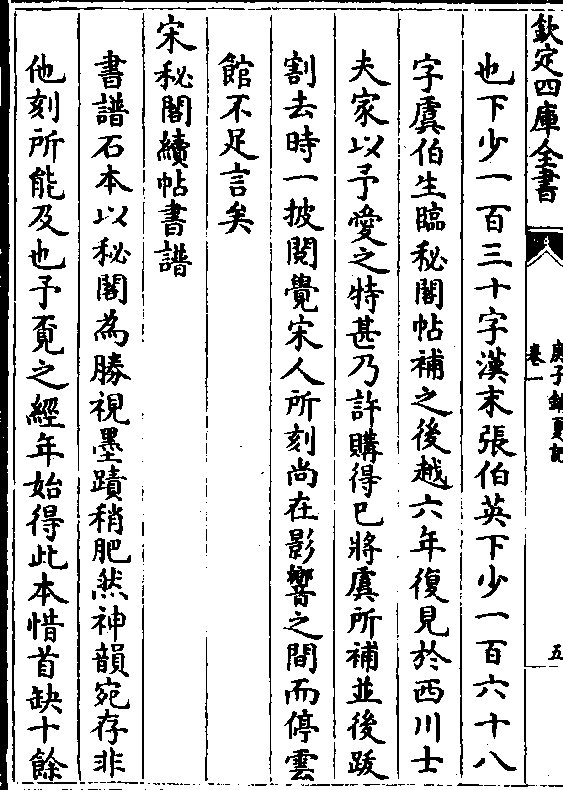 欽定四庫全書
庚子銷夏記
卷一
五
也下少一百三十字漢末張伯英下少一百六十八
字虞伯生臨秘閣帖補之後越六年復見於西川士
夫家以予愛之特甚乃許購得已將虞所補並後跋
割去時一披閱覺宋人所刻尚在影響之間而停雲
館不足言矣
宋秘閣續帖書譜
書譜石本以秘閣為勝視墨蹟稍肥然神韻宛存非
他刻所能及也予覔之經年始得此本惜首缺十餘